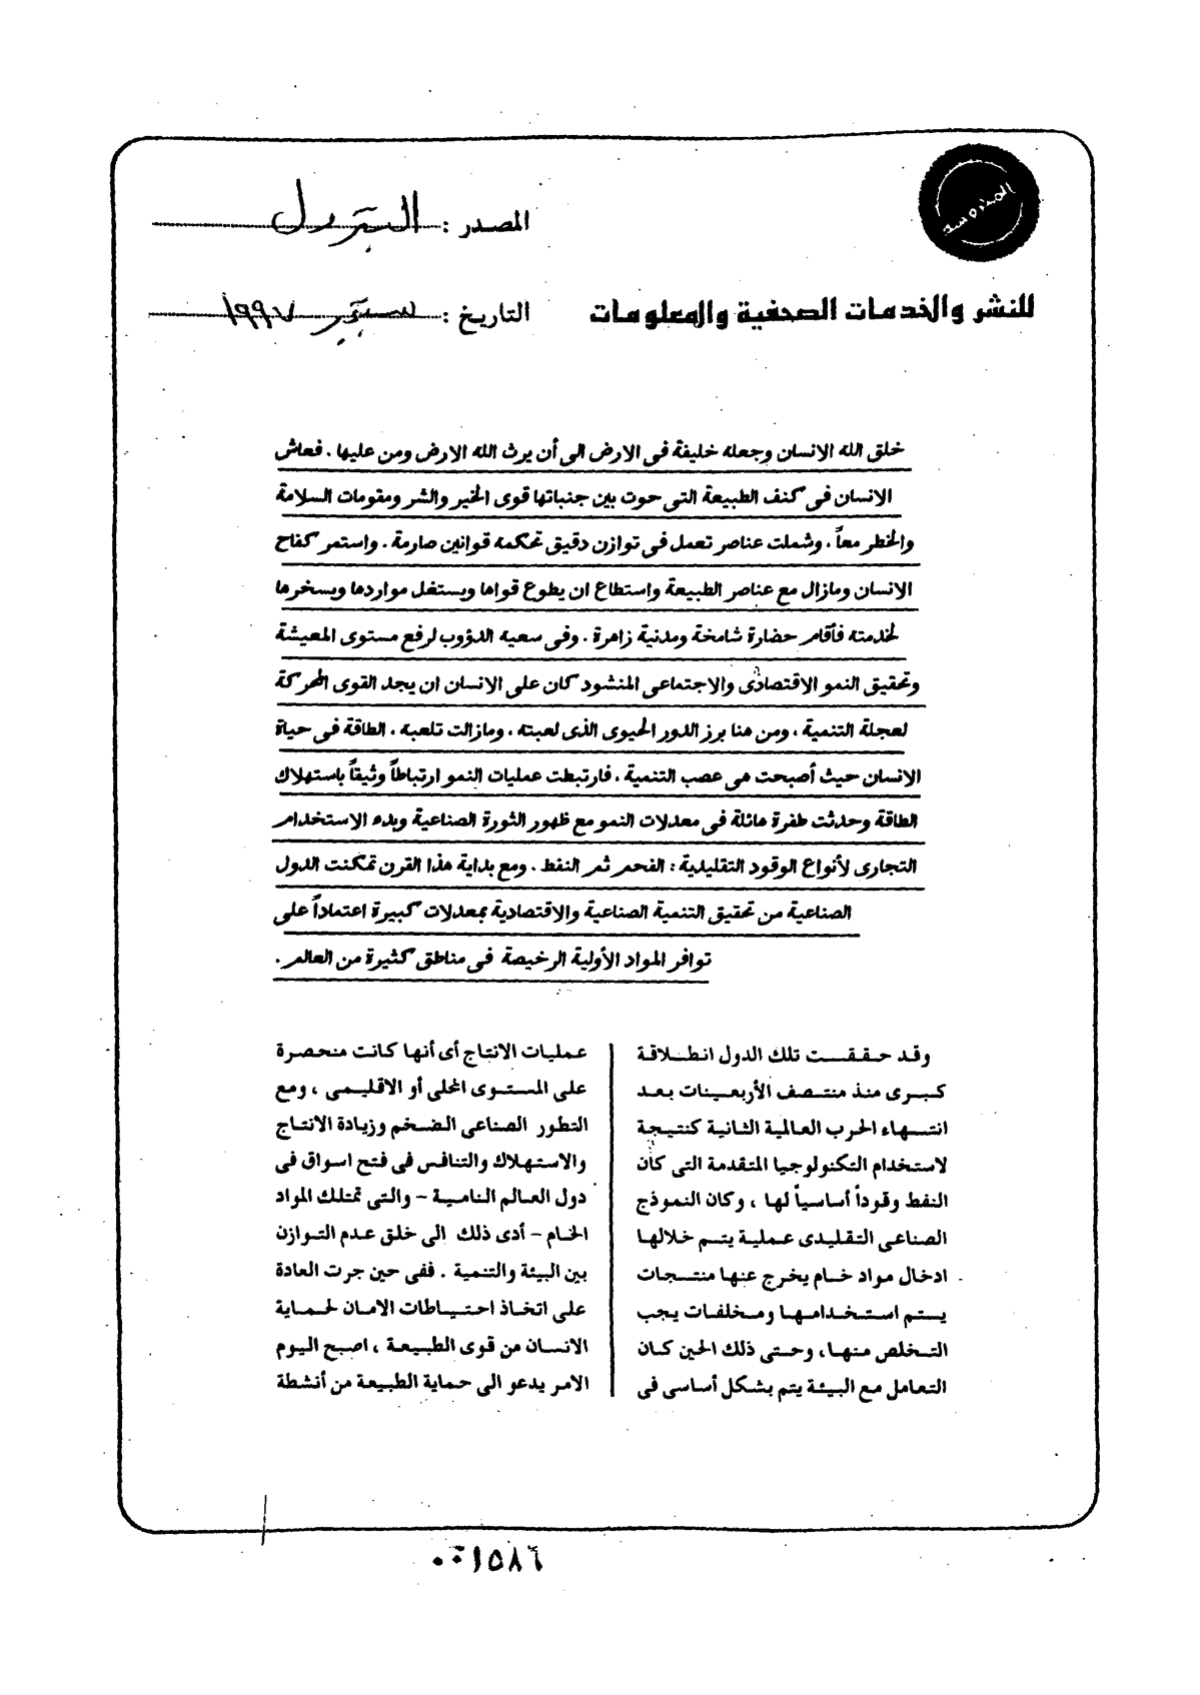 المصدر : البترول
للنشر والخدمات الصحفية والمعلومات
التاريخ : سبتمبر ١٩٩٧
خلق الله الانسان وجعله خليفة فى الارض الى أن يرث الله الارض ومن عليها . فعاش
الانسان فى كنف الطبيعة التى حوت بين جنباتها قوى الخير والشر ومقومات السلامة
والخطر معاً . وشملت عناصر تعمل فى توازن دقيق تحكمه قوانين صارمة . واستمر كفاح
الانسان ومازال مع عناصر الطبيعة واستطاع ان يطوع قواها ويستغل مواردها ويسخرها
لخدمته فأقام حضارة شامخة ومدنية زاهرة . وفى سعيه الدؤوب لرفع مستوى المعيشة
وتحقيق النمو الاقتصادى والاجتماعى المنشود كان على الانسان ان يجد القوى المحركة
لعجلة التنمية ، ومن هنا برز الدور الحيوى الذى لعبته ، ومازالت تلعبه ، الطاقة فى حياة
الانسان حيث أصبحت هى عصب التنمية . فارتبطت عمليات النمو ارتباطاً وثيقاً باستهلاك
الطاقة وحدثت طفرة هائلة فى معدلات النمو مع ظهور الثورة الصناعية وبدء الاستخدام
التجارى لأنواع الوقود التقليدية : الفحم ثم النفط . ومع بداية هذا القرن تمكنت الدول
الصناعية من تحقيق التنمية الصناعية والاقتصادية بمعدلات كبيرة اعتماداً على
توافر المواد الأولية الرخيصة فى مناطق كثيرة من العالم .
وقد حققت تلك الدول انطلاقة
كبرى منذ منتصف الأربعينات بعد
انتهاء الحرب العالمية الثانية كنتيجة
لاستخدام التكنولوجيا المتقدمة التى كان
النفط وقوداً أساسياً لها ، وكان النموذج
الصناعى التقليدى عملية يتم خلالها
ادخال مواد خام يخرج عنها منتجات
يتم استخدامها ومخلفات يجب
التخلص منها، وحتى ذلك الحين كان
التعامل مع البيئة يتم بشكل أساسى فى
عمليات الانتاج أى أنها كانت منحصرة
على المستوى المحلى أو الاقليمى ، ومع
التطور الصناعى الضخم وزيادة الانتاج
والاستهلاك والتنافس فى فتح اسواق فى
دول العالم النامية – والتى تمتلك المواد
الخام – أدى ذلك الى خلق عدم التوازن
بين البيئة والتنمية . ففى حين جرت العادة
على اتخاذ احتياطات الامان لحماية
الانسان من قوى الطبيعة ، اصبح اليوم
الامر يدعو الى حماية الطبيعة من أنشطة